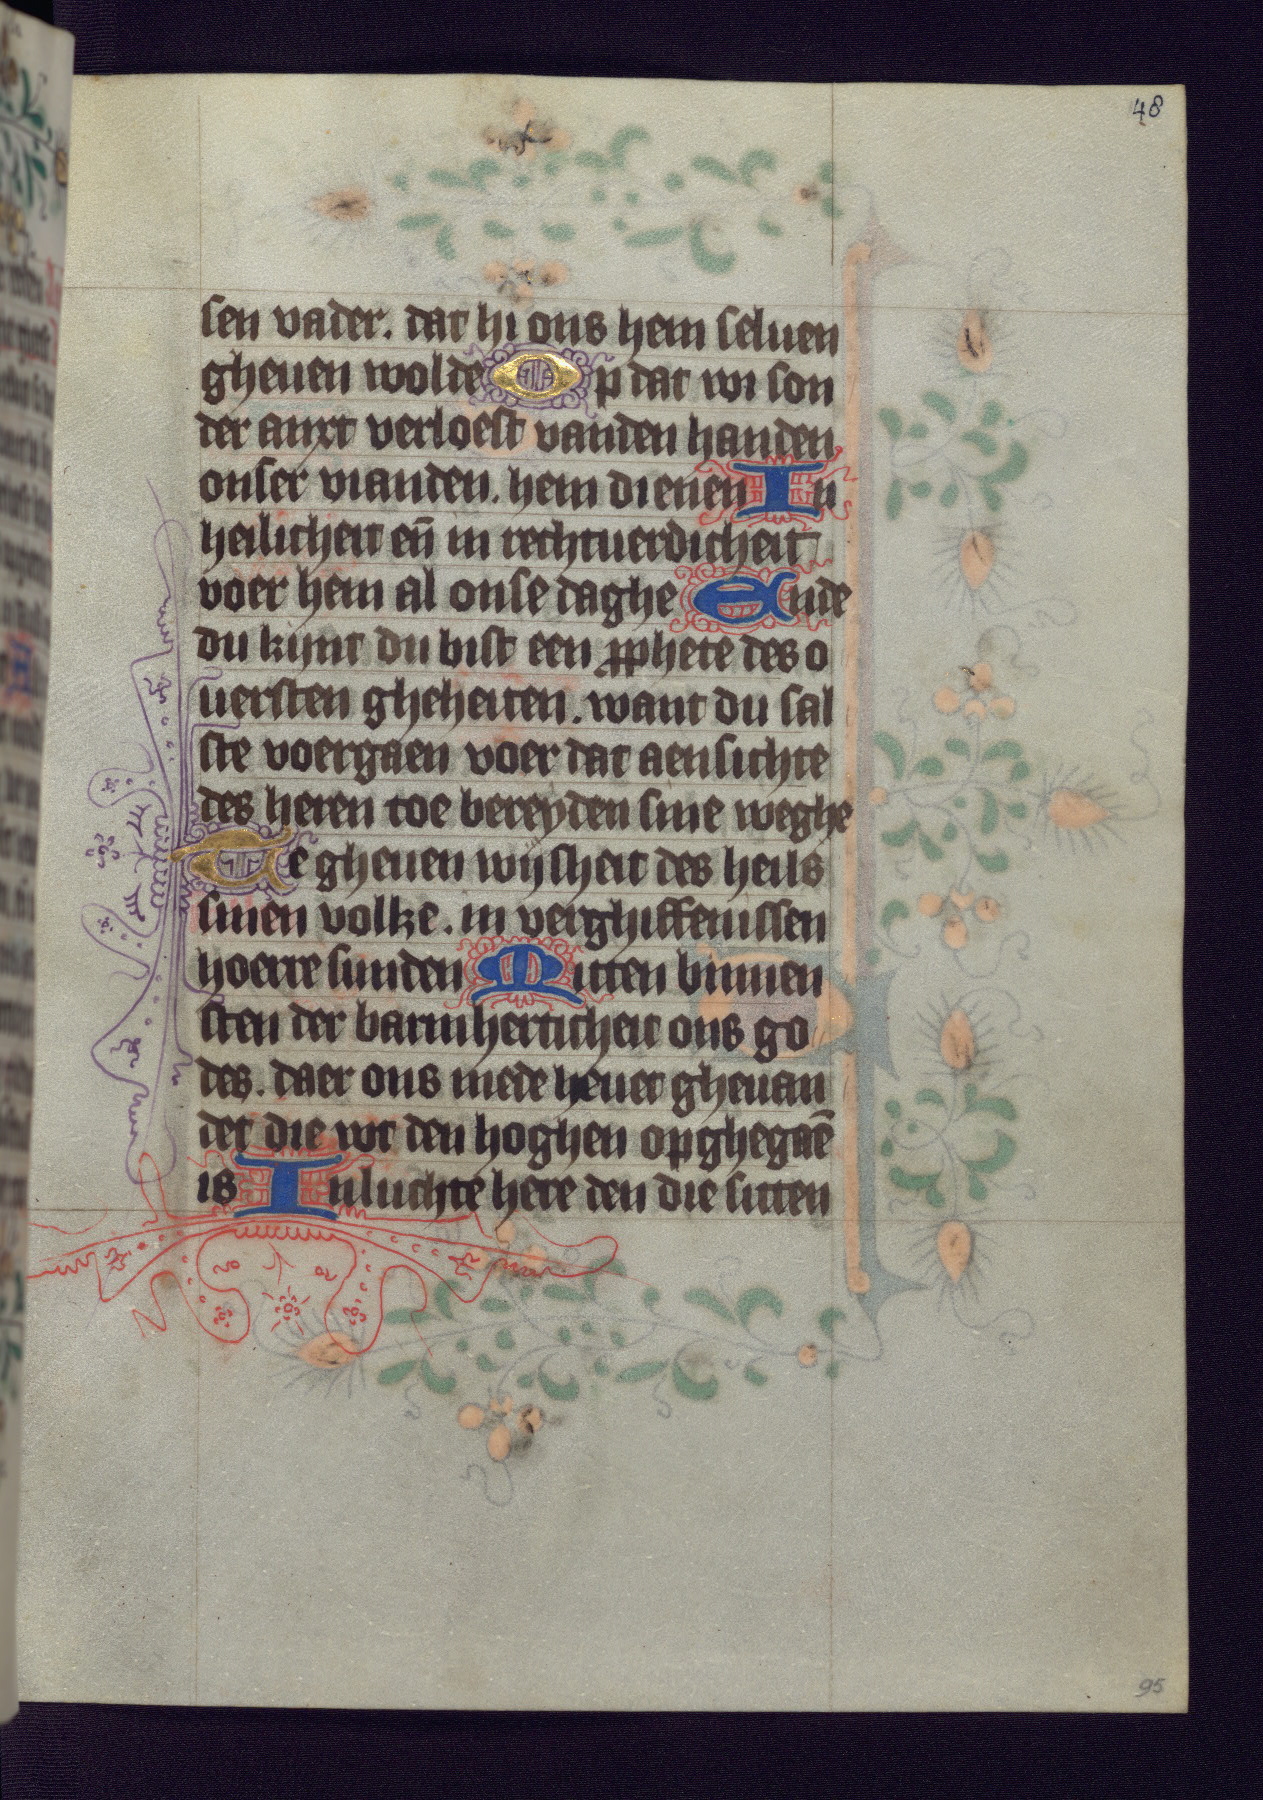 48
sen vader. dat hi ons hem seluen
gheuen wolde Op dat wi son
der anxt verloest vanden handen
onser vianden. hem dienen In
heilicheit en̄ in rechtuerdicheit
voer hem al onse daghe Ende
du kijnt du bist een ꝓphete des o
uersten gheheiten. want du sal
ste voergaen voer dat aensichte
des heren toe bereyden sine weghe
Te gheuen wijsheit des heils
sinen volke. in verghiffenissen
hoerre sunden Mitten binnen
sten der barmherticheit ons go
des. daer ons mede heuet gheuan
det die wt den hoghen opghegaē
is Inluchte here den die sitten
95